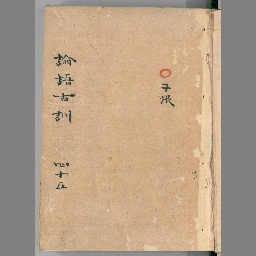 ○子張
論語古訓 四十五